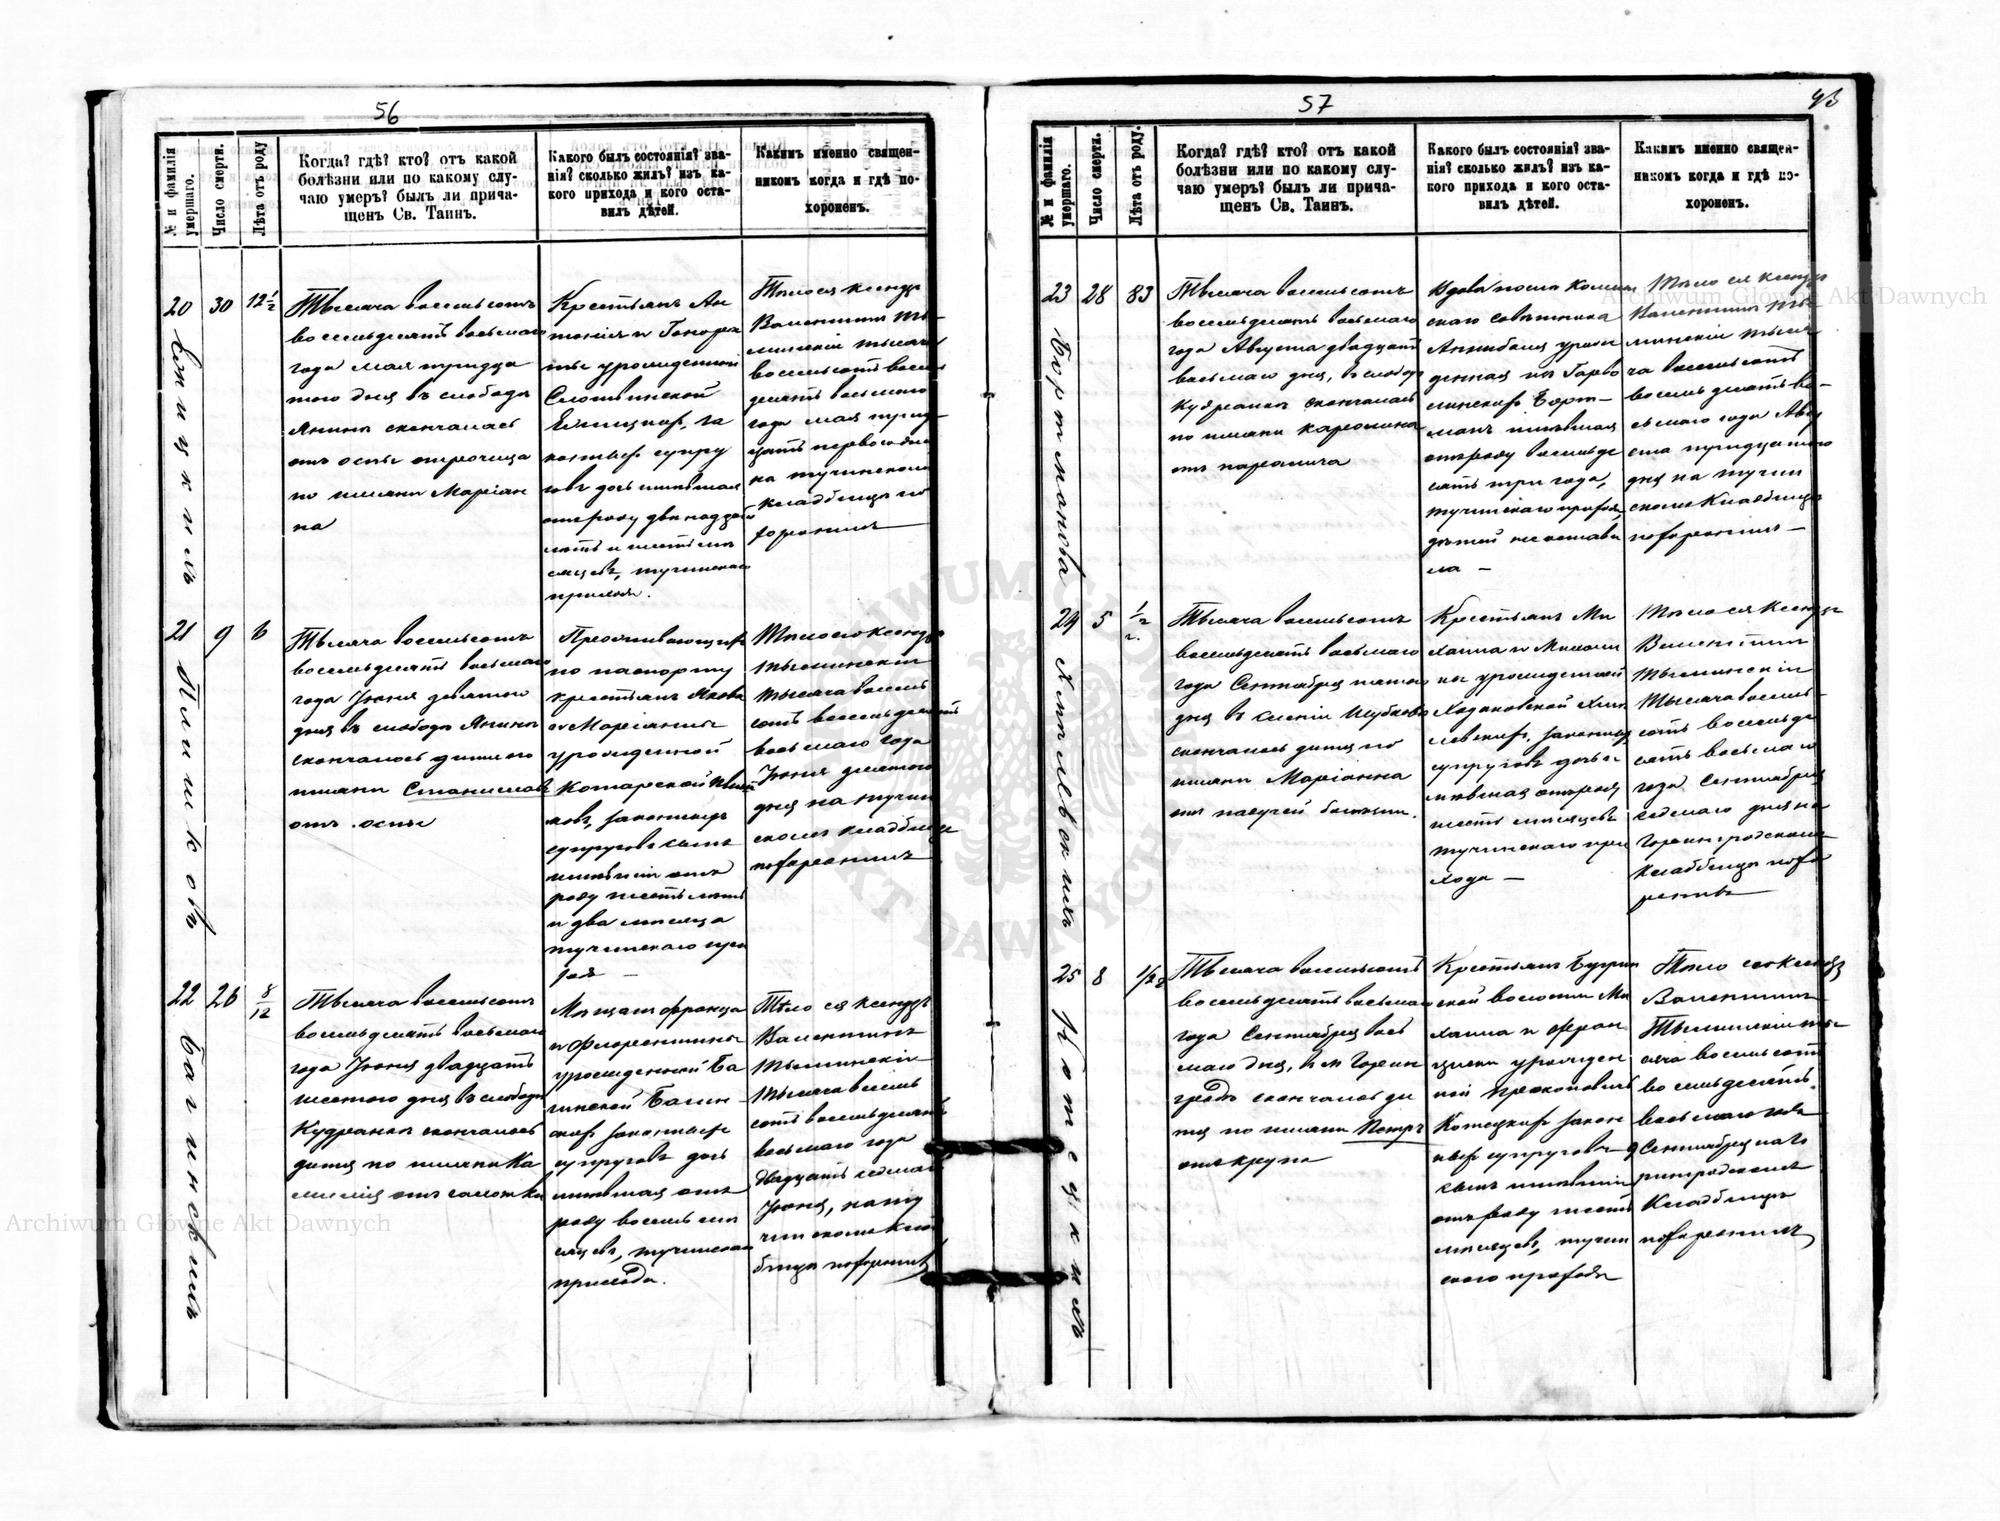 56
№ и фамилія
умершаго.
Число смерти.
Лѣта отъ роду
Когда? гдѣ? кто? отъ какой
болѣзни или по какому слу-
чаю умеръ? былъ ли прича-
щенъ Св. Таинъ.
Какого былъ состоянія? зва-
нія? сколько жилъ? изъ ка-
кого прихода и кого оста-
вилъ дѣтей.
Какимъ именно священ-
никомъ когда и гдѣ по-
хороненъ.
20
30
12 1/2
Тысяча восемьсотъ
восемьдесятъ восьмаго
года мая тридца
того дня въ слободѣ
Янинѣ скончалась
отъ оспы отроковица
по имени Маріан
на
Крестьянъ Ан
тонія и Гонора
ты урожденной
супру
говъ дочь имѣвшая
отъ роду двѣнадцать
лѣтъ и шесть мѣ
сяцевъ, тучинскаго
прихода.
Тѣло ея ксендзъ
Валентинъ Ты-
минскій тысяча
восемьсотъ восемь
десятъ восьмаго
года мая трид-
цать перваго дня
на тучинскомъ
кладбищѣ по
хоронилъ
21
9
6
Тысяча восемьсотъ
восемьдесятъ восьмаго
года Іюня девятого
дня въ слободѣ Янинѣ
скончалось дитя по
имени Станиславъ
отъ оспы
Проживающихъ
по паспорту
крестьянъ Якова
и Маріанны
урожденной
законныхъ
супруговъ сынъ
имѣвшій отъ
роду шесть лѣтъ
и два мѣсяца
тучинскаго при
хода
Тѣло его ксендзъ
Тыминскій
тысяча восемь
сотъ восемьдесятъ
восьмаго года
Іюня десятого
дня на тучин
скомъ кладбищѣ
похоронилъ
22
26
8/12
Багинскихъ
Тысяча восемьсотъ
восемьдесятъ восьмаго
года Іюня двадцать
шестого дня въ слободѣ
Кудранкѣ скончалось
дитя по имени Ка
милія отъ
Мѣщанъ Франца
и Флорентины
урожденной Ба
гинской Багин-
скихъ законныхъ
супруговъ дочь
имѣвшая отъ
роду восемь мѣ
сяцевъ, тучинскаго
прихода.
Тѣло ея ксендзъ
Валентинъ
Тыминскій
тысяча восемь
сотъ восемьдесятъ
восьмаго года
двадцать седьмаго
Іюня, на ту
чинскомъ клад
бищѣ похоронилъ
57
№ и фамилія
умершаго.
Число смерти.
Лѣта отъ роду.
Когда? гдѣ? кто? отъ какой
болѣзни или по какому слу-
чаю умеръ? былъ ли прича-
щенъ Св. Таинъ.
Какого былъ состоянія? зва-
нія? сколько жилъ? изъ ка-
кого прихода и кого оста-
вилъ дѣтей.
Какимъ именно священ-
никомъ когда и гдѣ по-
хороненъ.
23
28
83
Бортманова
Тысяча восемьсотъ
восемьдесятъ восьмаго
года Августа двадцать
восьмаго дня, въ слобод
Кудранкѣ скончалась
по имени Каролина
отъ паралича
Вдова
совѣтника
Аннибала урож
денная
Борт-
манъ имѣвшая
отъ роду восемьде
сятъ три года,
тучинскаго прихода,
дѣтей не остави
ла –
Тѣло ея ксендзъ
Валентинъ Ты-
минскій тыся
ча восемьсотъ
восемьдесятъ во-
сьмаго года Авгу
ста тридцатого
дня на тучин
скомъ кладбищѣ
похоронилъ –
24
5
1/2 г.
Хмѣлевскихъ
Тысяча восемьсотъ
восемьдесятъ восьмаго
года Сентября пятаго
дня въ имѣніи Шубково
скончалось дитя по
имени Маріанна
отъ падучей болѣзни.
Крестьянъ Ми
хаила и
урожденной
Ходаковской Хмѣ
левскихъ, законныхъ
супруговъ дочь и
мѣвшая отъ роду
шесть мѣсяцевъ
тучинскаго при
хода –
Тѣло ея ксендзъ
Валентинъ
Тыминскій
тысяча восемь-
сотъ восемьде
сятъ восьмаго
года Сентября
седьмаго дня на
Горынградскомъ
кладбищѣ похо
ронилъ
25
8
1/2 г
Котецкихъ
Тысяча восемьсотъ
восемьдесятъ восьмаго
года Сентября вось
маго дня, въ м Горын
градѣ скончалось ди
тя по имени Петръ
отъ крупа
Крестьянъ
волости Ми
хаила и Фран
циски урожден
ной Прокоповичъ
Котецкихъ закон
ныхъ супруговъ
сынъ имѣвшій
отъ роду шесть
мѣсяцевъ, тучин
скаго прихода
Тѣло его ксендзъ
Валентинъ
Тыминскій ты-
сяча восемьсотъ
восемьдесятъ
восьмаго года
Сентября на Го
рынградскомъ
кладбищѣ
похоронилъ
Archiwum Główne Akt Dawnych
Archiwum Główne Akt Dawnych
ARCHIWUM GŁÓWNE AKT DAWNYCH